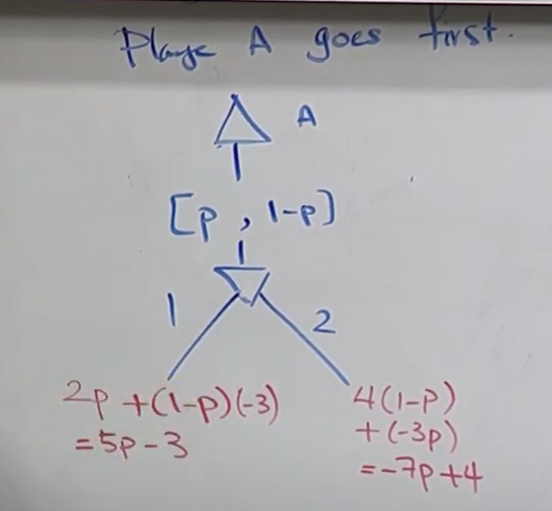 Playe A goes first.
A
[p, 1-p]
1
2
2p +(1-p)(-3)
=5p-3
4(1-p)
+(-3p)
=-7p+4